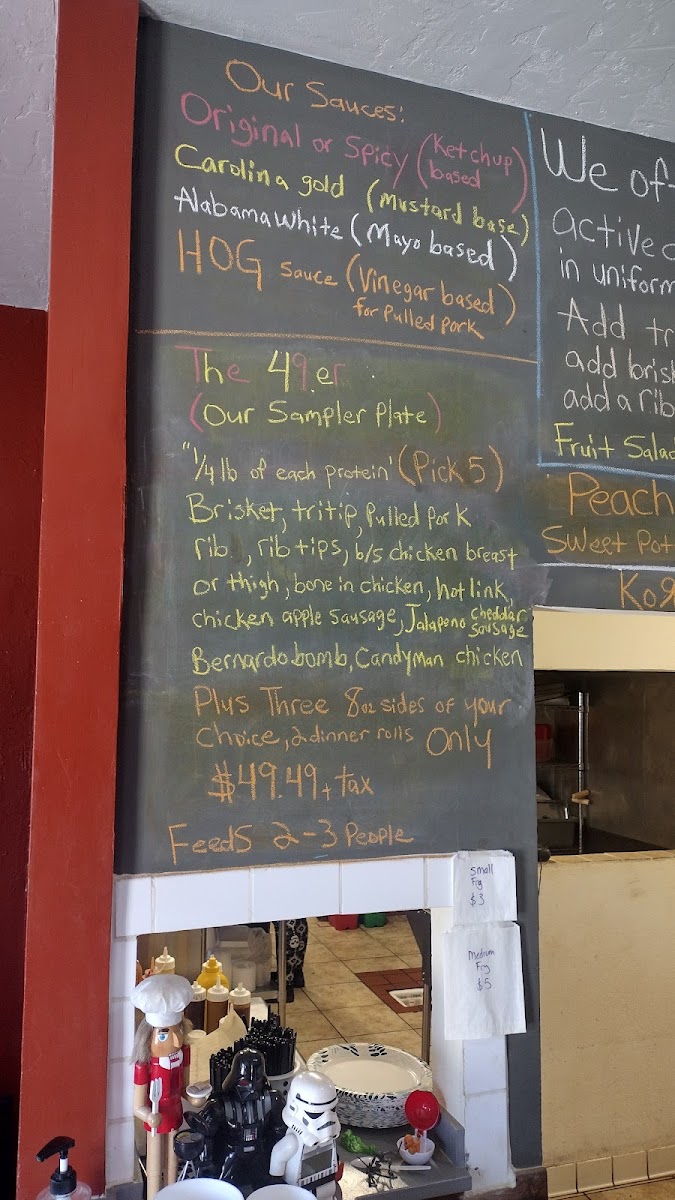 Our Sauces:
Original or Spicy (Ketchup based)
Carolina gold (Mustard base)
Alabama White (Mayo based)
HOG sauce (Vinegar based)
for Pulled Pork
The 49.er
(Our Sampler Plate)
"1/4 lb of each protein' (Pick 5)
Brisket, tritip, Pulled Pork
rib , rib tips, b/s chicken breast
or thigh, bone in chicken, hot link,
chicken apple sausage, Jalapeno cheddar sausage
Bernardo bomb, Candyman chicken
Plus Three 8oz sides of your
choice, 2 dinner rolls Only
$49.49 + tax
Feeds 2-3 People
We of
active
in uniform
Add tr
add brisk
add a rib
Fruit Salad
Peach
Sweet Pot
Small
Fry
$3
Medium
Fry
$5